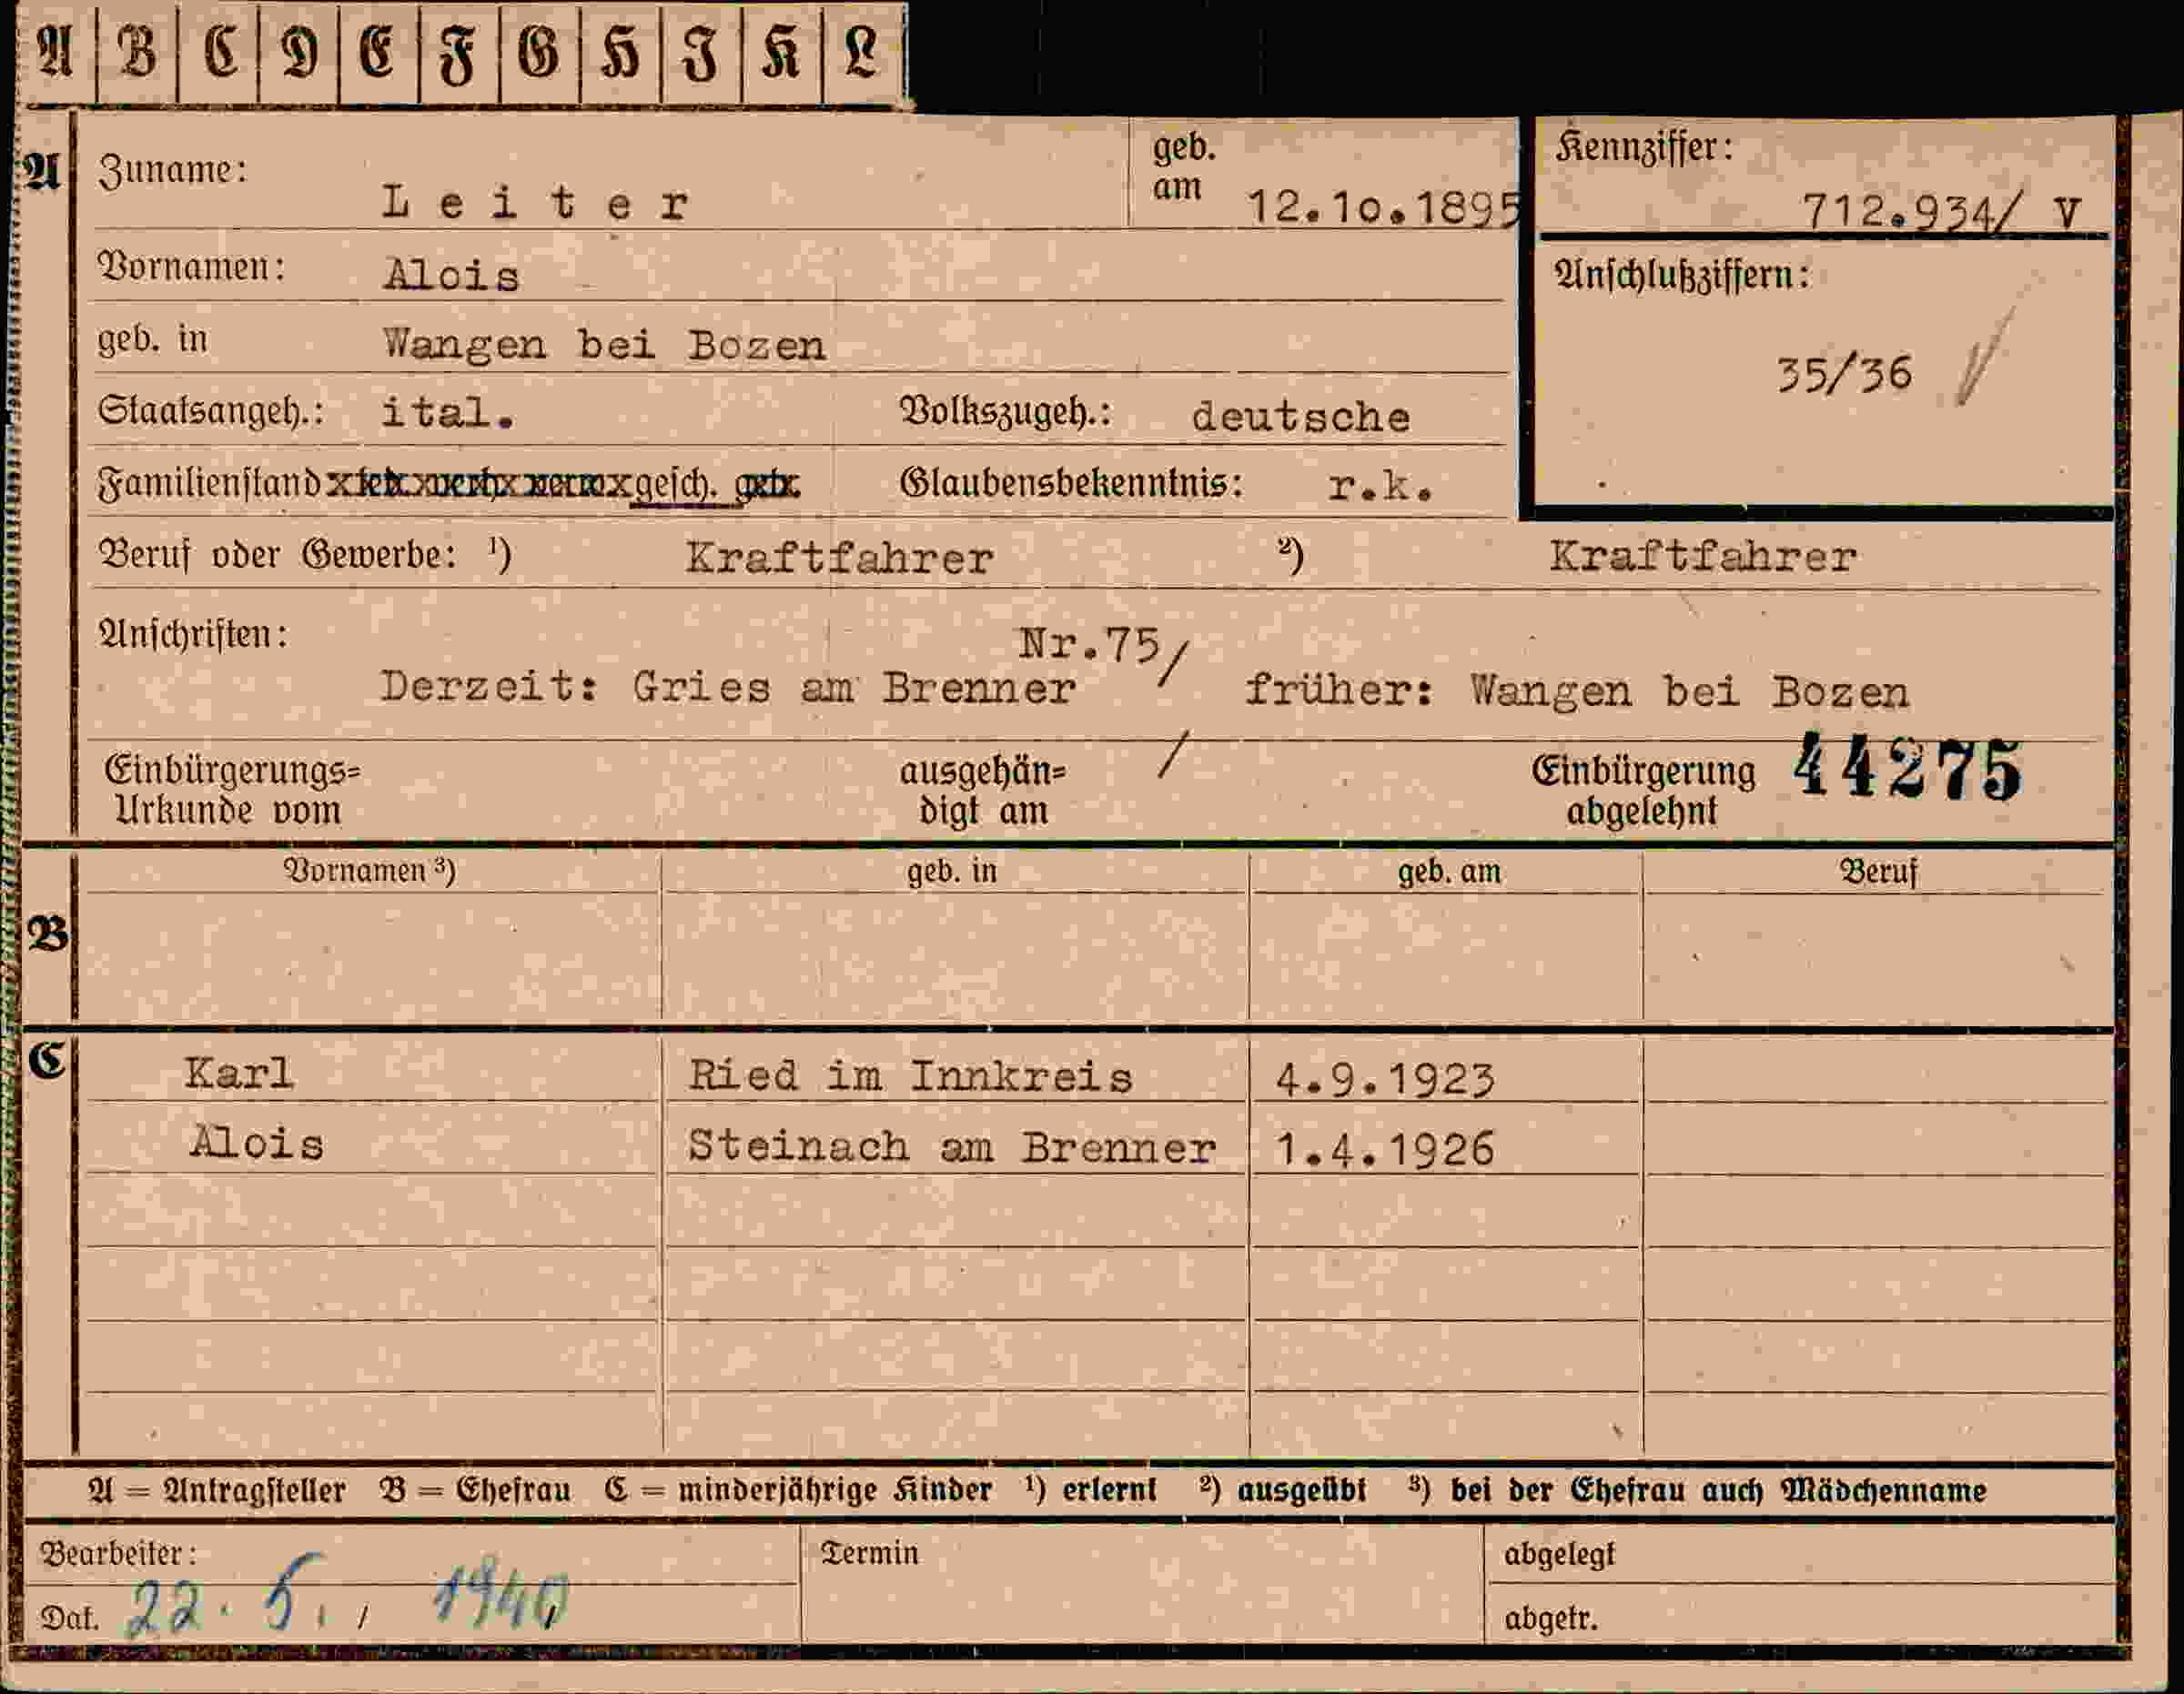 A B C D E F G H I K L
A Zuname: Leiter geb. am 12.10.1895 Kennziffer: 712.934/ V
Vornamen: Alois Anschlußziffern:
geb. in Wangen bei Bozen 35/36
Staatsangeh.: ital. Volkszugeh.: deutsche
Familienstand gesch. getr. Glaubensbekenntnis: r.k.
Beruf oder Gewerbe: ¹) Kraftfahrer ²) Kraftfahrer
Anschriften: Nr.75/
Derzeit: Gries am Brenner früher: Wangen bei Bozen
Einbürgerungs= ausgehän= / Einbürgerung 44275
Urkunde vom digt am abgelehnt
Vornamen ³) geb. in geb. am Beruf
B
C Karl Ried im Innkreis 4.9.1923
Alois Steinach am Brenner 1.4.1926
A = Antragsteller B = Ehefrau C = minderjährige Kinder ¹) erlernt ²) ausgeübt ³) bei der Ehefrau auch Mädchenname
Bearbeiter: Termin abgelegt
Dat. 22. 5. 1940 abgetr.